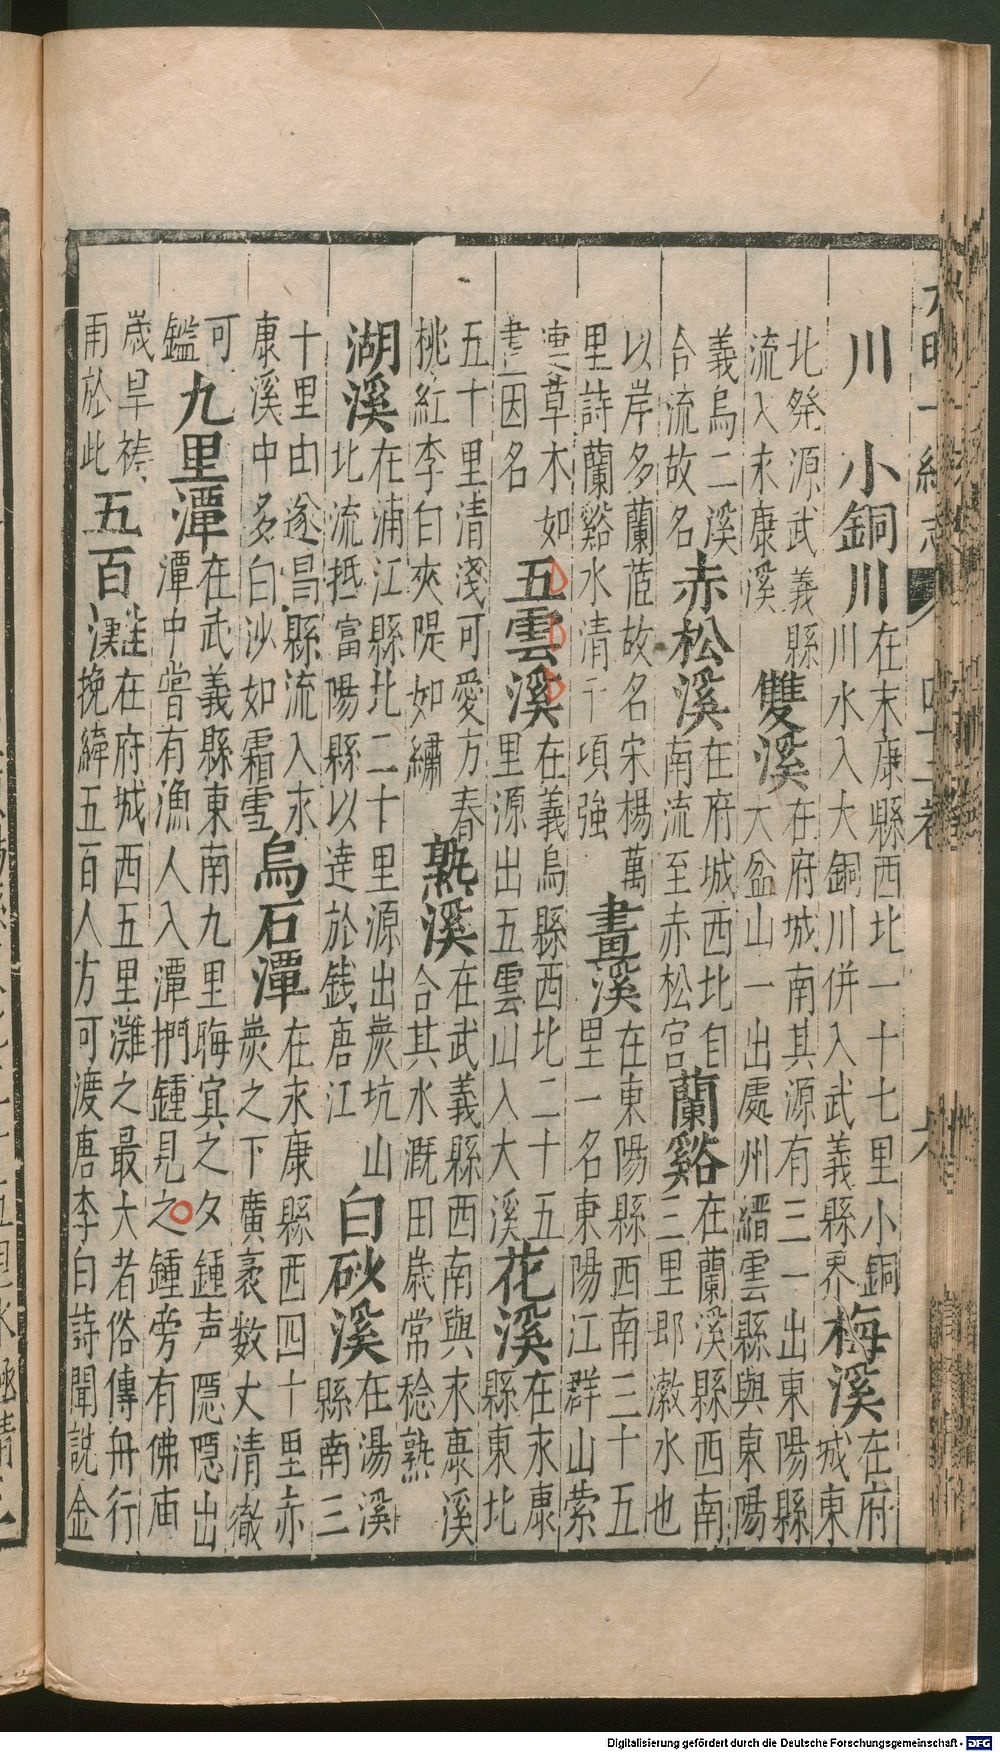 大明一統志 四十二卷 六
川 小銅川 在永康縣西北一十七里小銅川水入大銅川併入武義縣界 梅溪 在府城東
北發源武義縣流入永康溪 雙溪 在府城南其源有三一出東陽縣大盆山一出處州縉雲縣與東陽
義烏二溪合流故名 赤松溪 在府城西北自南流至赤松宮 蘭谿 在蘭溪縣西南三里即瀫水也
以岸多蘭茝故名宋楊萬里詩蘭谿水清千頃強 畫溪 在東陽縣西南三十五里一名東陽江群山縈
遶草木如畫因名 五雲溪 在義烏縣西北二十五里源出五雲山入大溪 花溪 在永康縣東北
五十里清淺可愛方春桃紅李白夾隄如繡 熟溪 在武義縣西南與永康溪合其水溉田歲常稔熟
湖溪 在浦江縣北二十里源出炭坑山北流抵富陽縣以達於錢唐江 白砂溪 在湯溪縣南三
十里由遂昌縣流入永康溪中多白沙如霜雪 烏石潭 在永康縣西四十里赤炭之下廣袤数丈清徹
可鑑 九里潭 在武義縣東南九里晦冥之夕鍾声隱隱出潭中嘗有漁人入潭捫鍾見之鍾旁有佛庙
歲旱祷雨於此 五百灘 在府城西五里灘之最大者俗傳舟行挽緯五百人方可渡唐李白詩聞說金
Digitalisierung gefördert durch die Deutsche Forschungsgemeinschaft - DFG